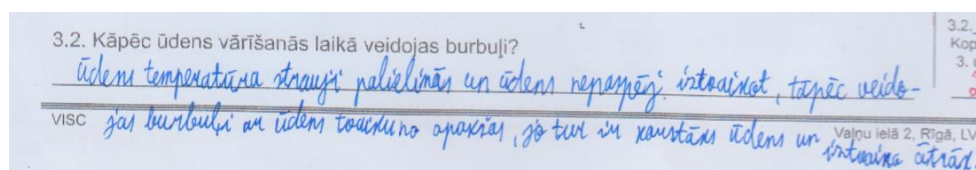 3.2.
Kop
3.
3.2. Kāpēc ūdens vārīšanās laikā veidojas burbuļi?
Ūdens temperatūra strauji palielinās un ūdens nepaspēj iztvaikot, tāpēc veido-
VISC jas burbuļi ar ūdens tvaiku no apakšas, jo tur ir karstāks ūdens un iztvaiko ātrāk.
Vaļņu ielā 2, Rīgā, LV